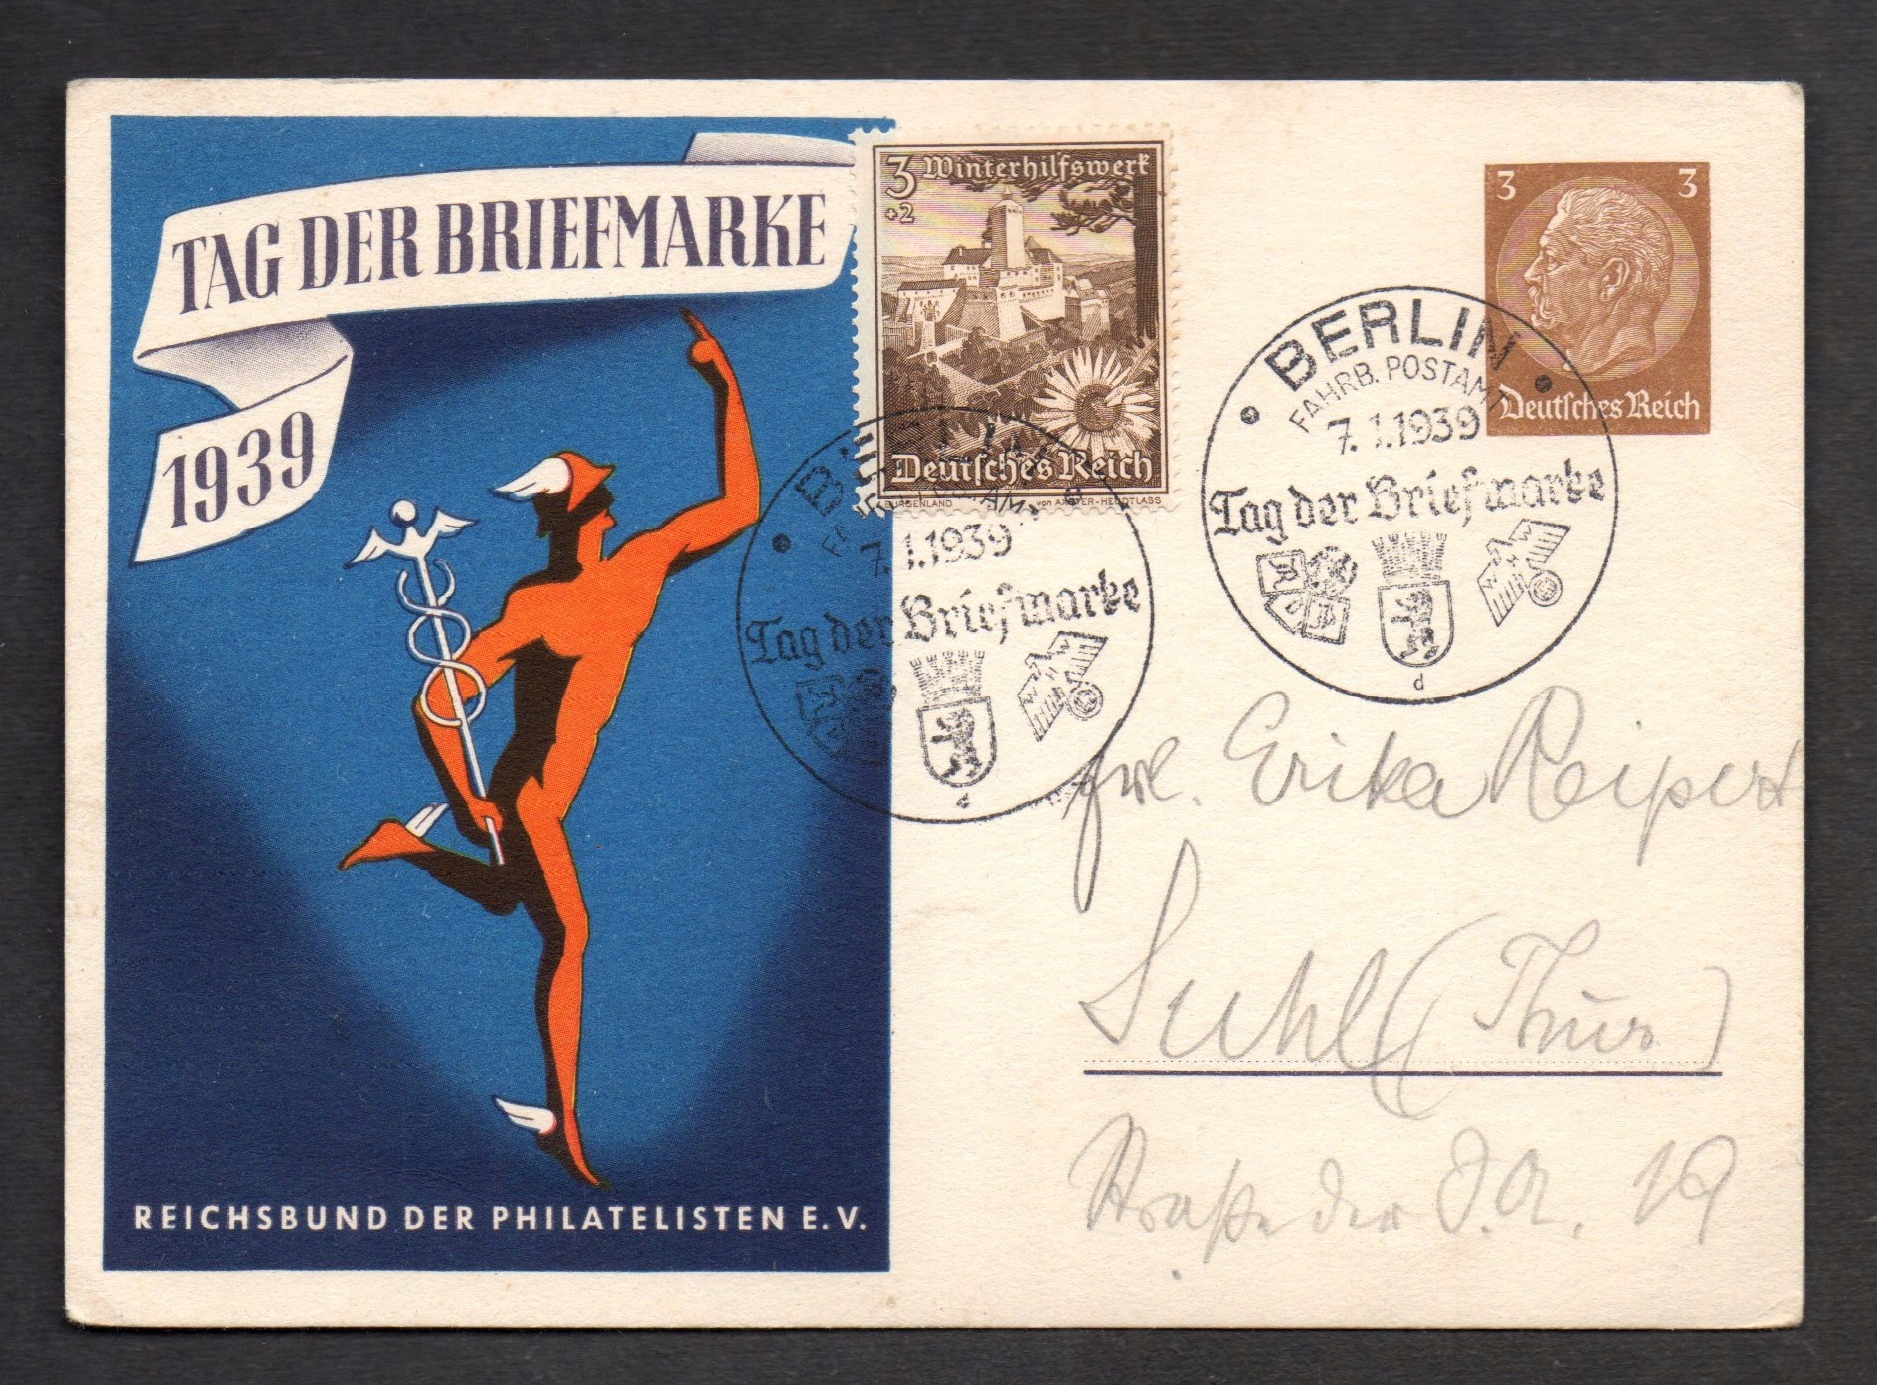 TAG DER BRIEFMARKE
1939
REICHSBUND DER PHILATELISTEN E.V.
3 Winterhilfswerk
+2
Deutsches Reich
BURGENLAND von AXSTER-HEUDTLASS
3 3
Deutsches Reich
BERLIN
FAHRB. POSTAMT
7.1.1939
Tag der Briefmarke
d
BERLIN
FAHRB. POSTAMT
7.1.1939
Tag der Briefmarke
d
Frl. Erika Reipert
Suhl (Thür)
Straße der S.A. 19